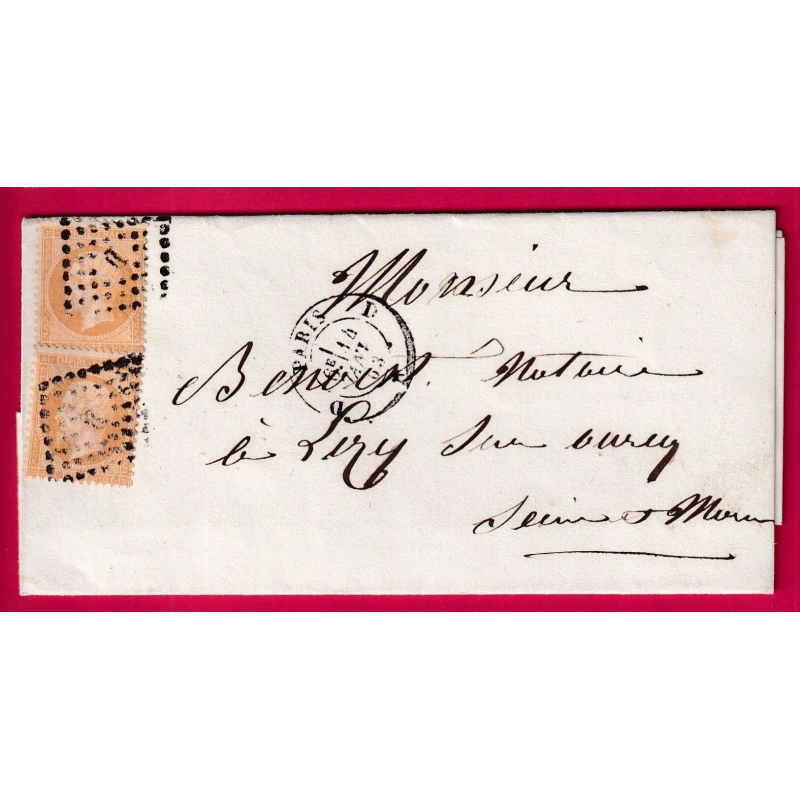 Monsieur
PARIS D
14
63
Benoist Notaire
à Lizy sur ourcq
Seine et Marne
D